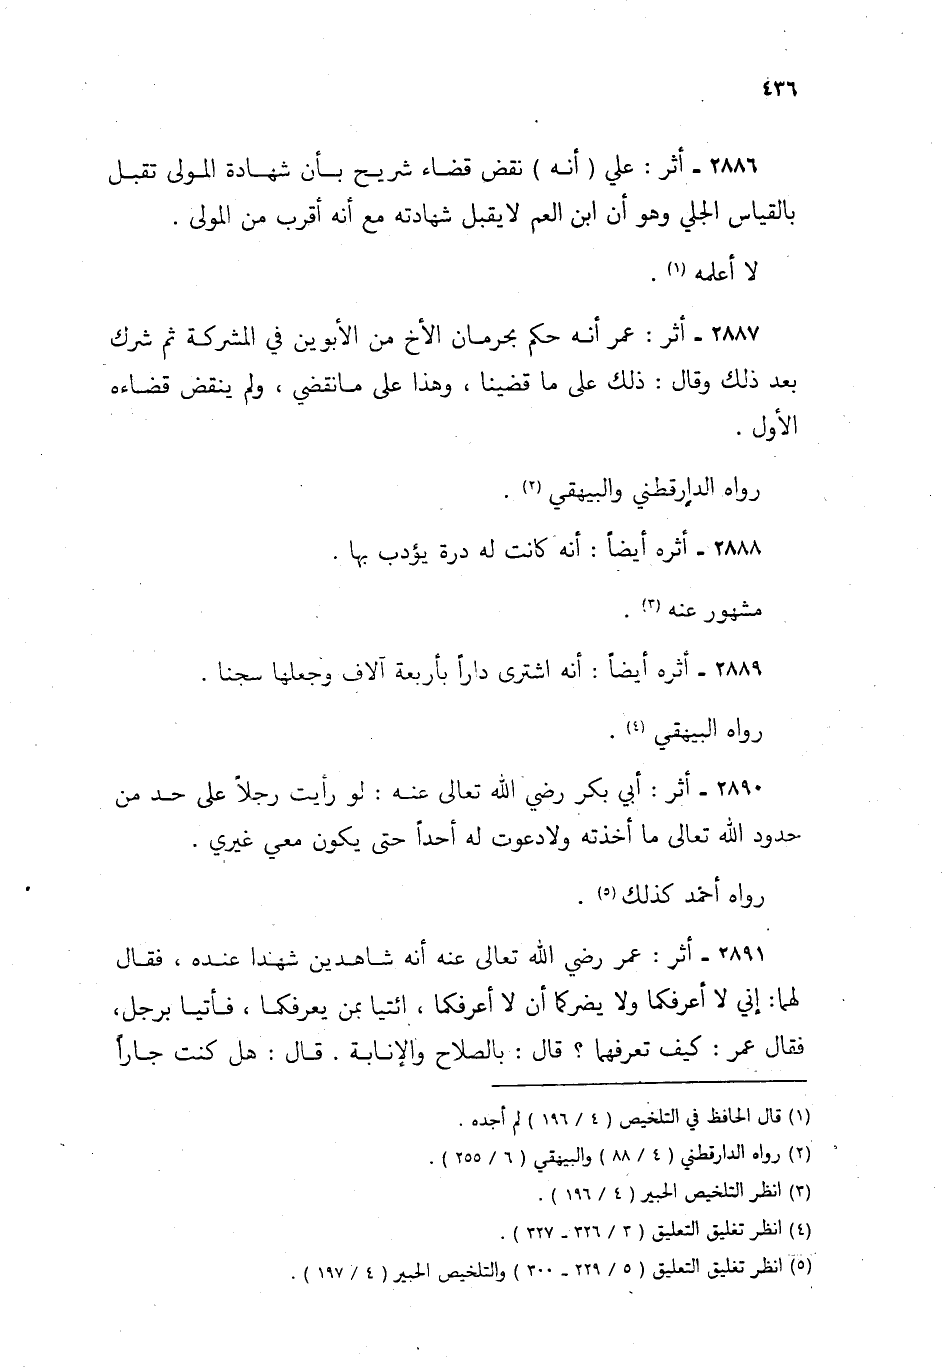 ٤٣٦
٢٨٨٦ ـ أثر : علي ( أنه ) نقض قضاء شريح بأن شهادة المولى تقبل
بالقياس الجلي وهو أن ابن العم لايقبل شهادته مع أنه أقرب من المولى .
لا أعلمه (١) .
٢٨٨٧ ـ أثر : عمر أنه حكم بحرمان الأخ من الأبوين في المشركة ثم شرك
بعد ذلك وقال : ذلك على ما قضينا ، وهذا على مانقضي ، ولم ينقض قضاءه
الأول .
رواه الدارقطني والبيهقي (٢) .
٢٨٨٨ ـ أثره أيضاً : أنه كانت له درة يؤدب بها .
مشهور عنه (٣) .
٢٨٨٩ ـ أثره أيضاً : أنه اشترى داراً بأربعة آلاف وجعلها سجنا .
رواه البيهقي (٤) .
٢٨٩٠ ـ أثر : أبي بكر رضي الله تعالى عنه : لو رأيت رجلاً على حد من
حدود الله تعالى ما أخذته ولادعوت له أحداً حتى يكون معي غيري .
رواه أحمد كذلك (٥) .
٢٨٩١ ـ أثر : عمر رضي الله تعالى عنه أنه شاهدين شهدا عنده ، فقال
لهما: إني لا أعرفكما ولا يضركما أن لا أعرفكما ، ائتيا بمن يعرفكما ، فأتيا برجل،
فقال عمر : كيف تعرفهما ؟ قال : بالصلاح والإنابة . قال : هل كنت جاراً
(١) قال الحافظ في التلخيص ( ٤ / ١٩٦ ) لم أجده .
(٢) رواه الدارقطني ( ٤ / ٨٨ ) والبيهقي ( ٦ / ٢٥٥ ) .
(٣) انظر التلخيص الحبير ( ٤ / ١٩٦ ) .
(٤) انظر تغليق التعليق ( ٣ / ٣٢٦ ـ ٣٢٧ ) .
(٥) انظر تغليق التعليق ( ٥ / ٢٢٩ ـ ٣٠٠ ) والتلخيص الحبير ( ٤ / ١٩٧ ) .